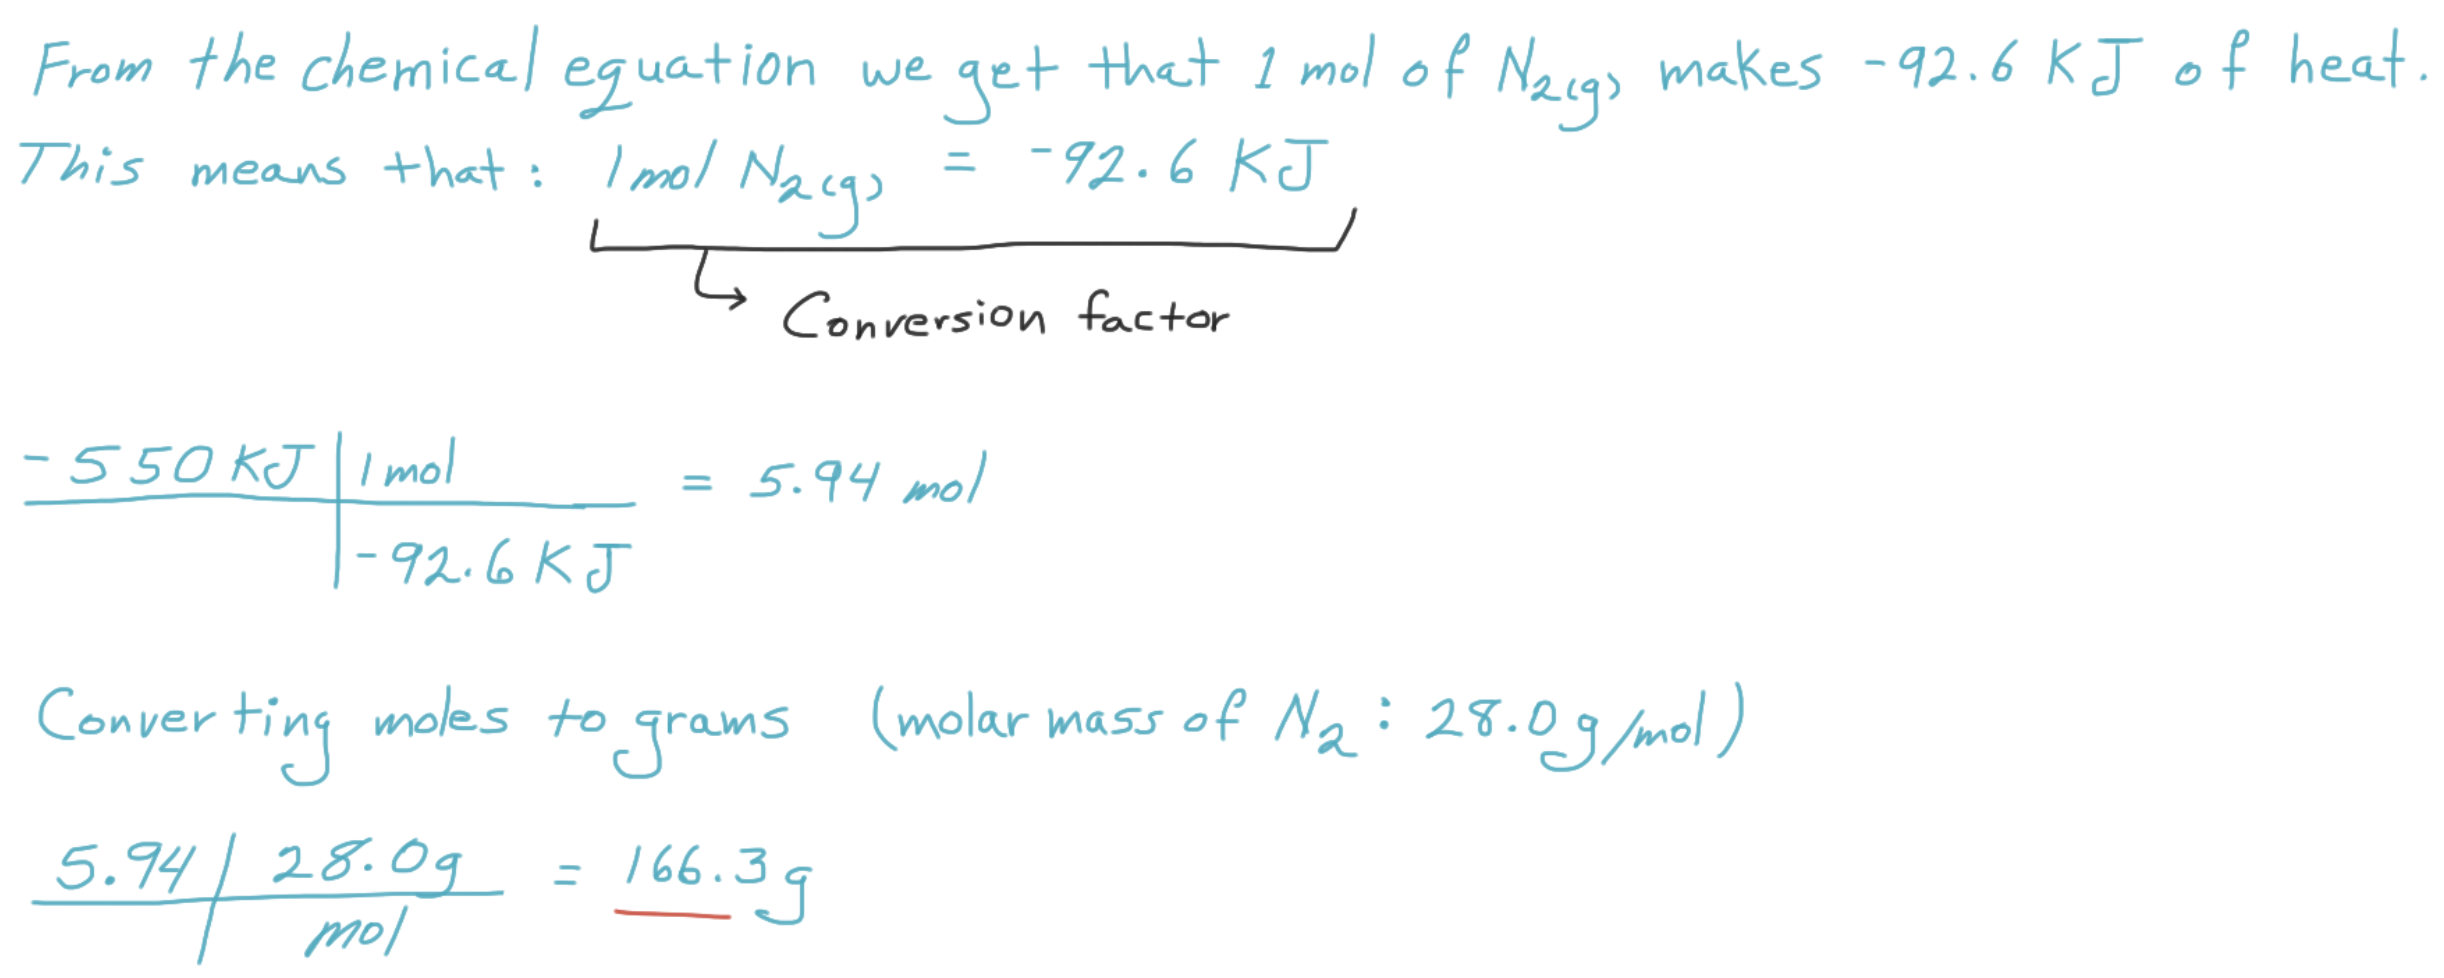 From the chemical equation we get that 1 mol of N₂(g) makes -92.6 KJ of heat.
This means that: 1 mol N₂(g) = -92.6 KJ
Conversion factor
-550 KJ | 1 mol = 5.94 mol
-92.6 KJ
Converting moles to grams (molar mass of N₂: 28.0 g/mol)
5.94 | 28.0g = 166.3 g
mol